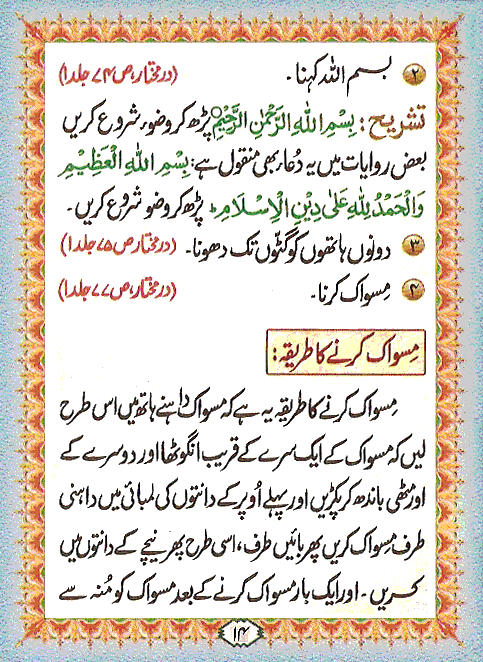 ۲ بسم اللہ کہنا۔ (درمختار، ص ۷۴ جلد ۱)
تشریح: بِسْمِ اللهِ الرَّحْمٰنِ الرَّحِيْمِ پڑھ کر وضوء شروع کریں
بعض روایات میں یہ دُعاء بھی منقول ہے: بِسْمِ اللهِ الْعَظِيْمِ
وَالْحَمْدُ لِلّٰهِ عَلٰى دِيْنِ الْاِسْلَامِ۔ پڑھ کر وضو شروع کریں۔
۳ دونوں ہاتھوں کو گٹوں تک دھونا۔ (درمختار ص ۷۵ جلد ۱)
۴ مِسواک کرنا۔ (درمختار، ص ۷۷ جلد ۱)
مِسواک کرنے کا طریقہ:
مِسواک کرنے کا طریقہ یہ ہے کہ مسواک داہنے ہاتھ میں اس طرح
لیں کہ مسواک کے ایک سرے کے قریب انگوٹھا اور دوسرے کے
اور مٹھی باندھ کر پکڑیں اور پہلے اُوپر کے دانتوں کی لمبائی میں داہنی
طرف مِسواک کریں پھر بائیں طرف، اسی طرح پھر نیچے کے دانتوں میں
کریں۔ اور ایک بار مسواک کرنے کے بعد مسواک کو مُنہ سے
۱۴